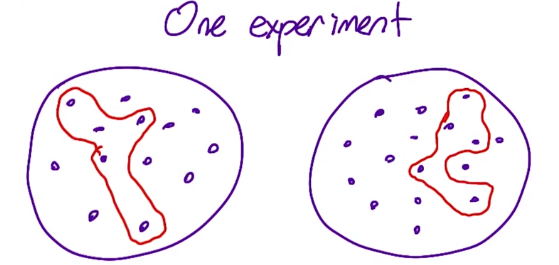 One experiment